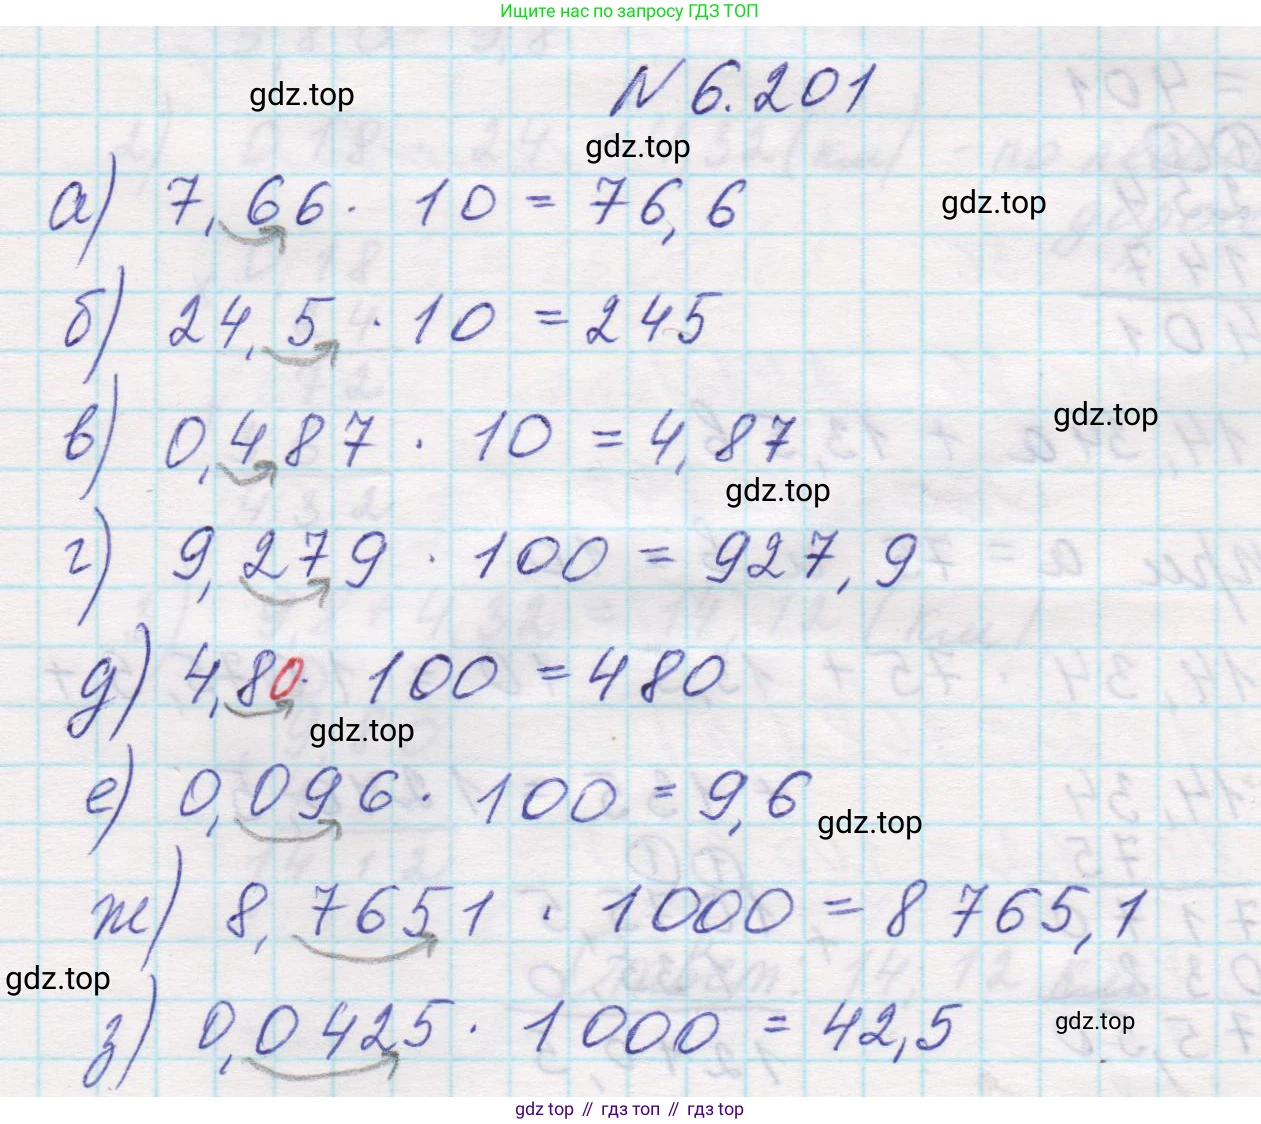 Ищите нас по запросу ГДЗ ТОП
N 6.201
gdz.top
gdz.top
а) 7,66 · 10 = 76,6
gdz.top
б) 24,5 · 10 = 245
в) 0,487 · 10 = 4,87
gdz.top
gdz.top
г) 9,279 · 100 = 927,9
д) 4,80 · 100 = 480
gdz.top
е) 0,096 · 100 = 9,6
gdz.top
ж) 8,7651 · 1000 = 8765,1
gdz.top
з) 0,0425 · 1000 = 42,5
gdz.top
gdz top // гдз топ // gdz.top